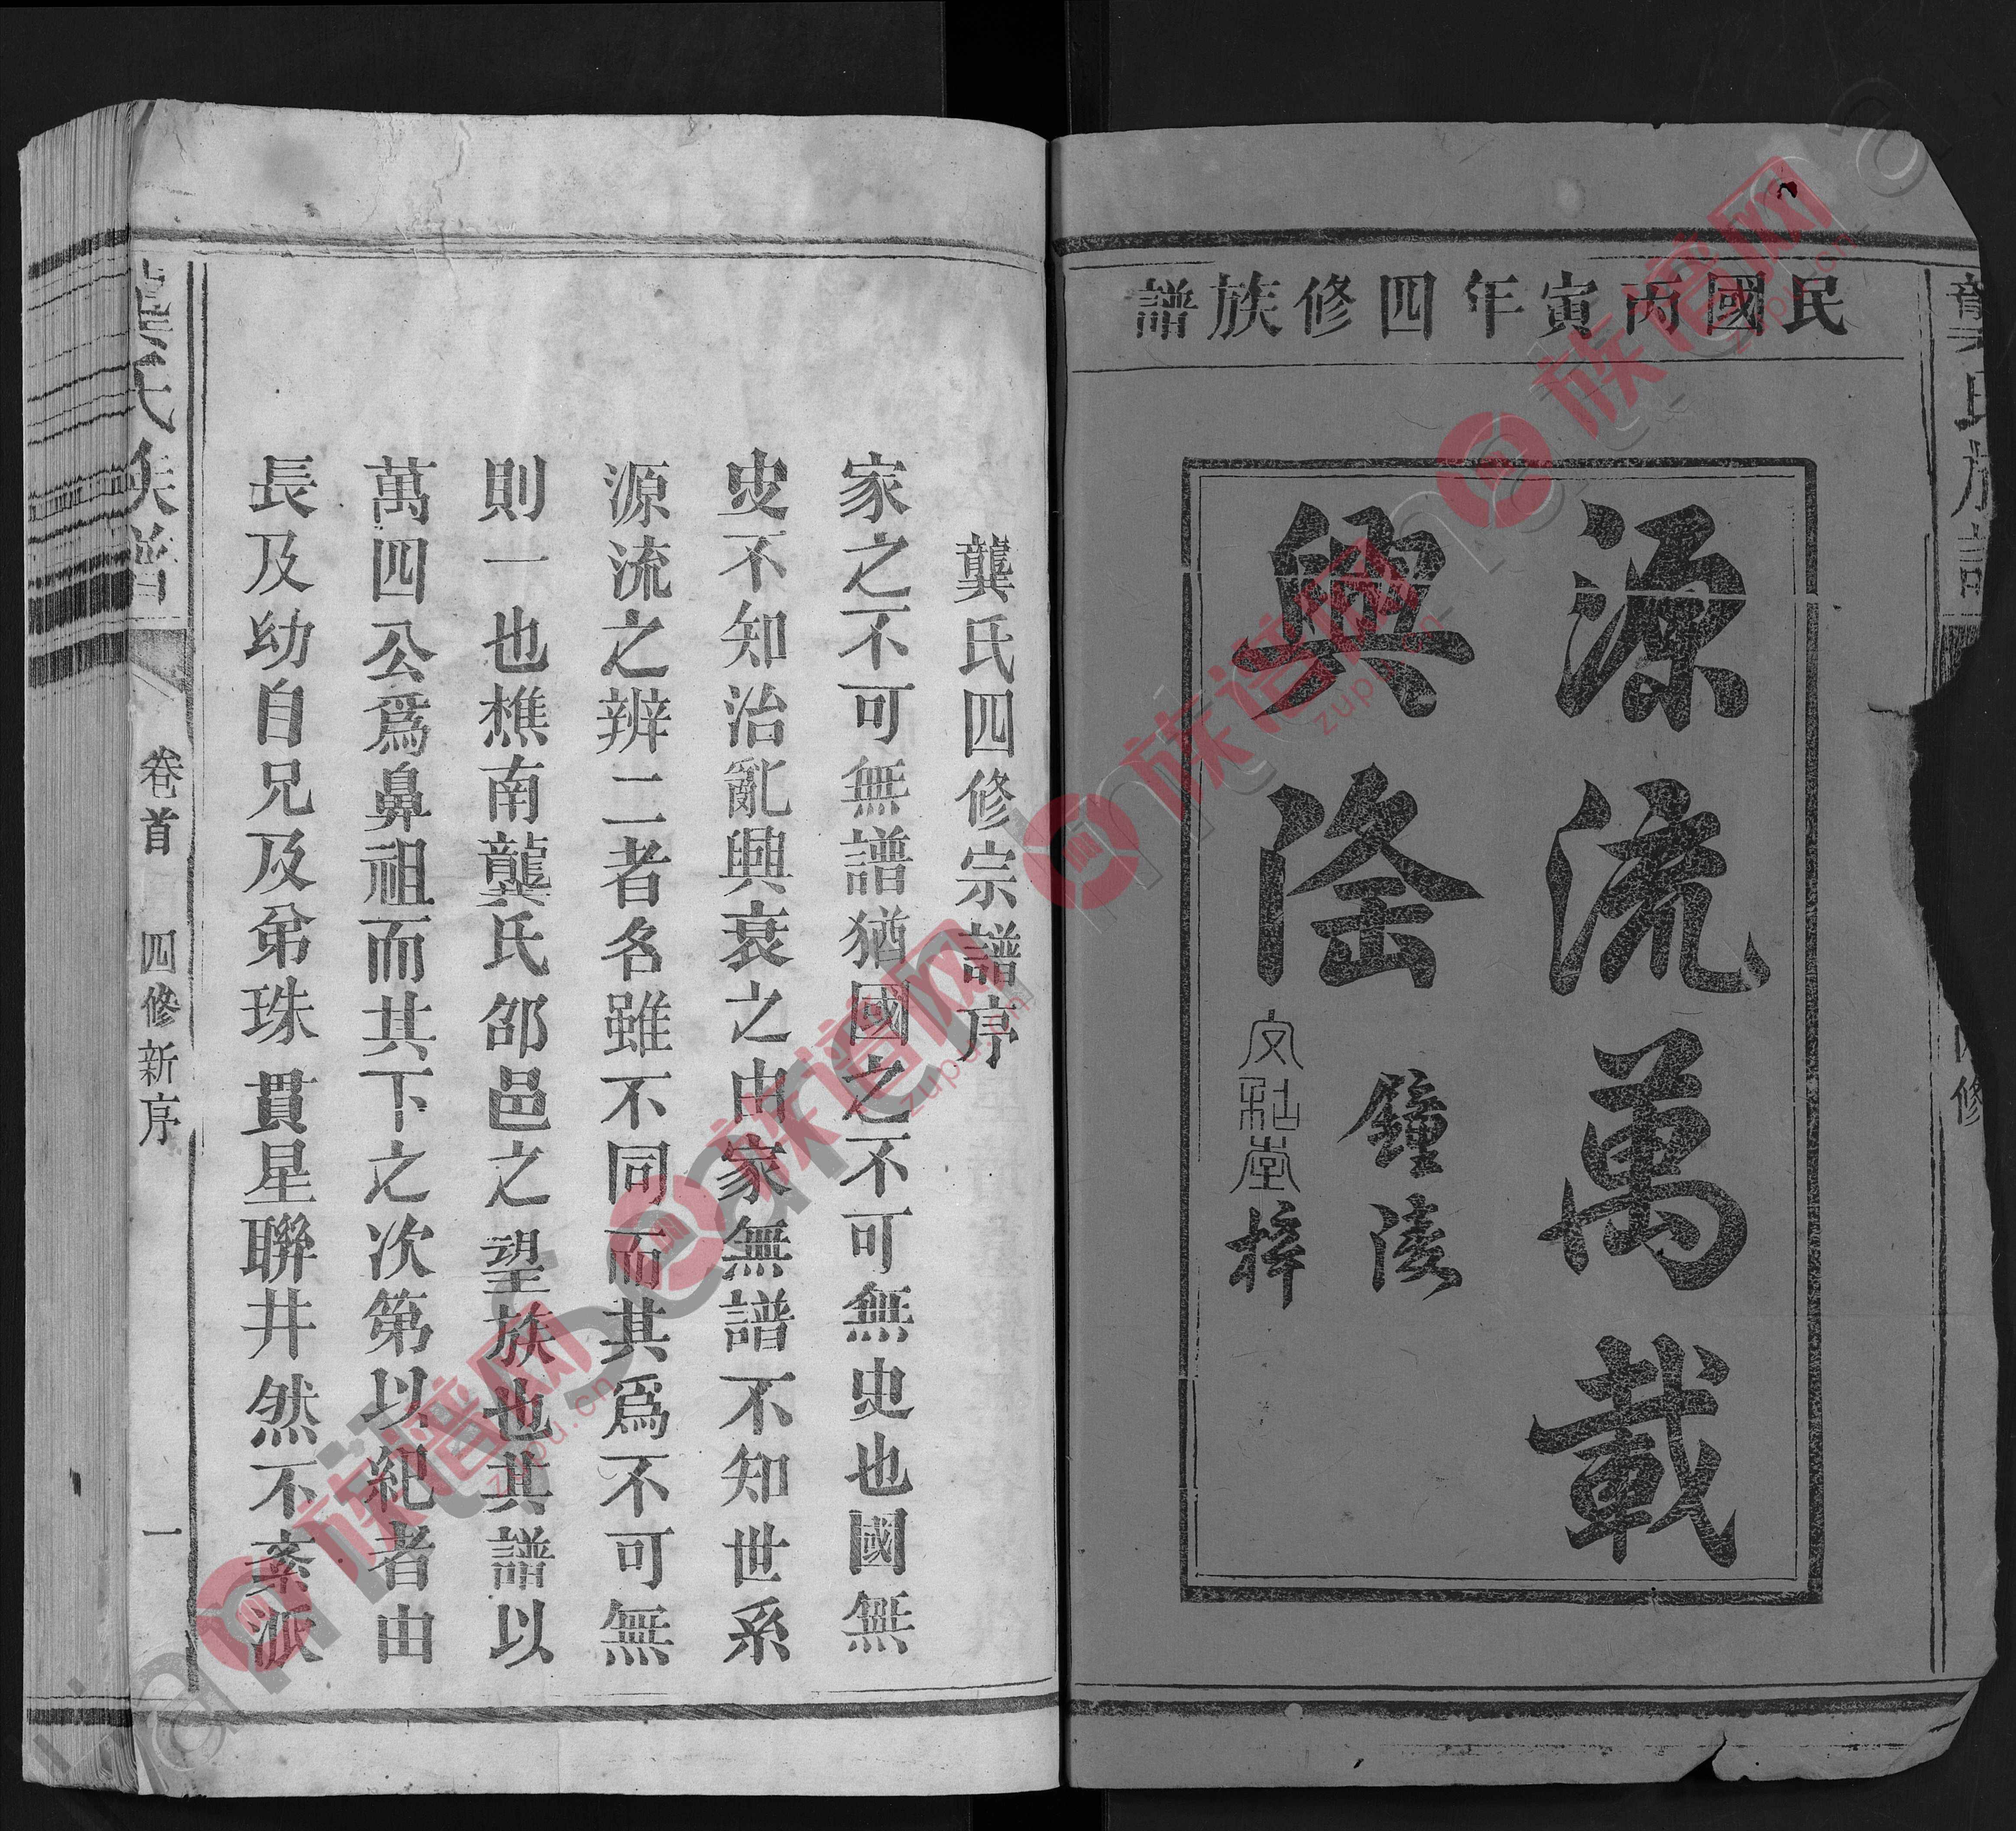 民國丙寅年四修族譜
源流萬載
興隆
鐘陵
文社堂梓
龔氏族譜
四修
龔氏四修宗譜序
家之不可無譜猶國之不可無史也國無
史不知治亂興衰之由家無譜不知世系
源流之辨二者名雖不同而其爲不可無
則一也樵南龔氏邵邑之望族也其譜以
萬四公爲鼻祖而其下之次第以紀者由
長及幼自兄及弟珠貫星聯井然不紊派
龔氏族譜
卷首
四修新序
一
族谱网
zupu.cn